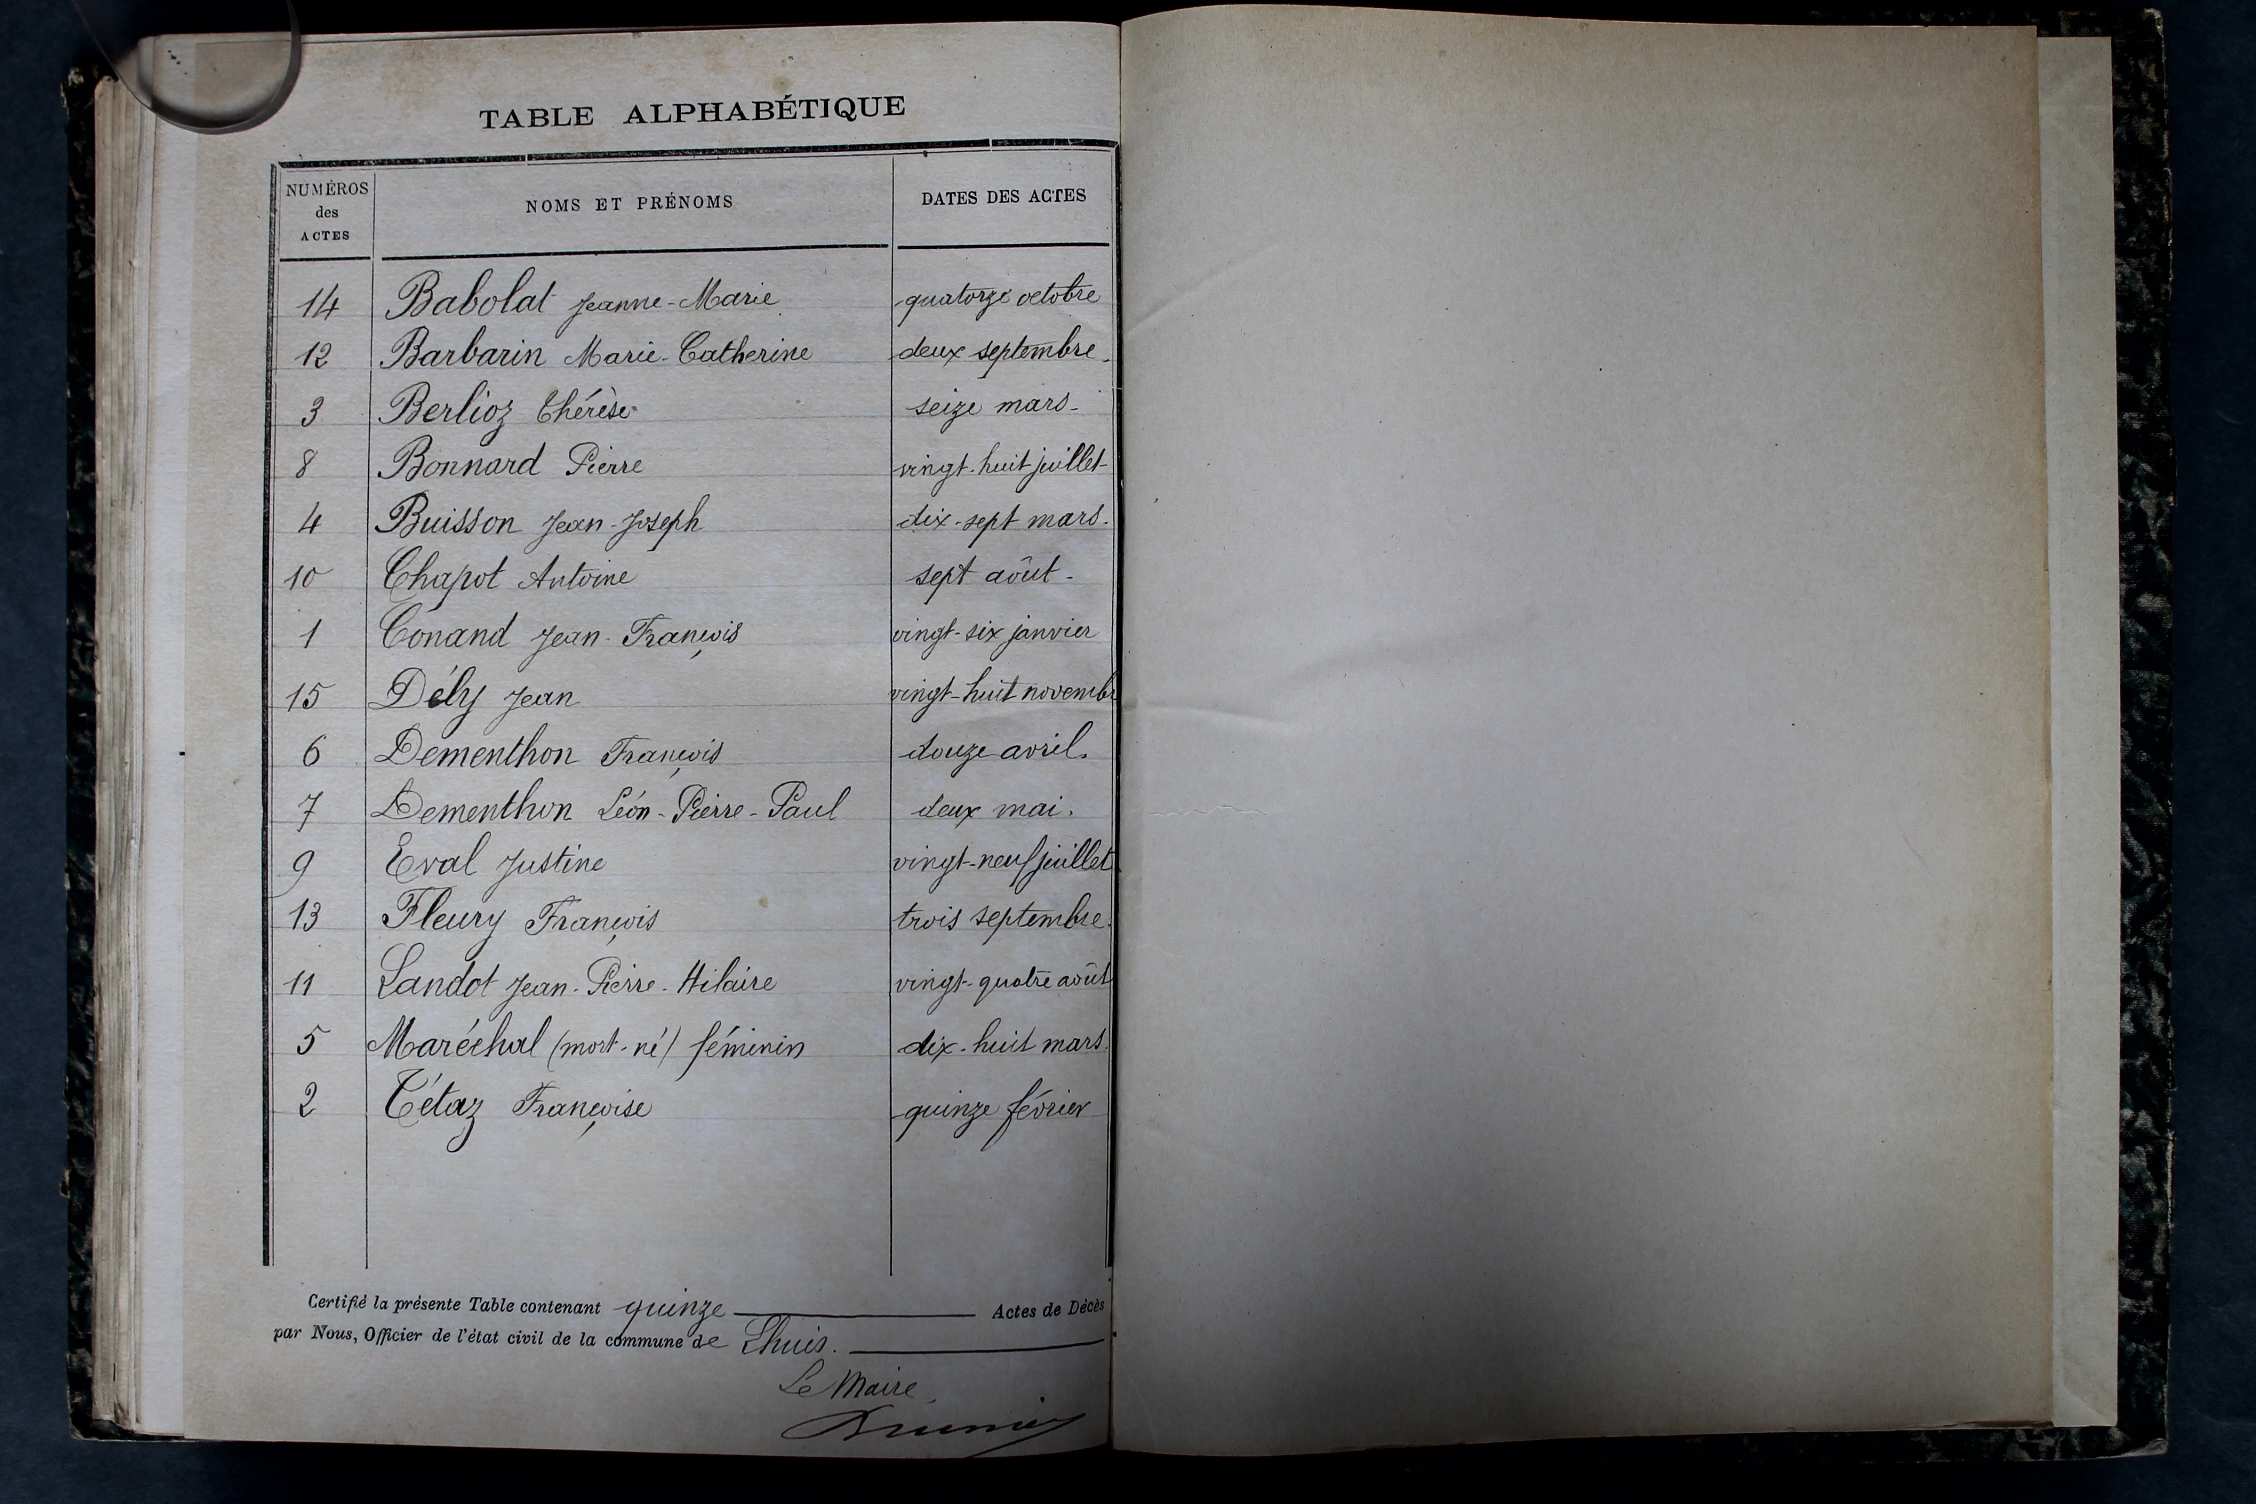 TABLE ALPHABÉTIQUE
NUMÉROS des ACTES NOMS ET PRÉNOMS DATES DES ACTES
14 Babolat Jeanne-Marie quatorze octobre
12 Barbarin Marie-Catherine deux septembre.
3 Berlioz Thérèse seize mars-
8 Bonnard Pierre vingt-huit juillet-
4 Buisson Jean-Joseph dix-sept mars.
10 Chapot Antoine sept août-
1 Conand Jean-François vingt-six janvier
15 Dély Jean vingt-huit novembr
6 Dementhon François douze avril.
7 Dementhon Léon-Pierre-Paul deux mai.
9 Eval Justine vingt-neuf juillet
13 Fleury François trois septembre.
11 Landot Jean-Pierre-Hilaire vingt-quatre août
5 Maréchal (mort-né) féminin dix-huit mars.
2 Tétaz Françoise quinze février
Certifié la présente Table contenant quinze Actes de Décès
par Nous, Officier de l'état civil de la commune de Lhuis.
Le Maire